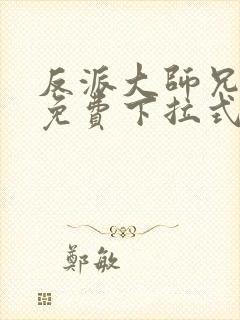 反派大師兄
免費下拉式
鄭敏